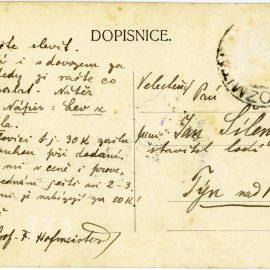 DOPISNICE.
šte slevit.
i s dovozem za
tedy zi račte co
oslat. Nátěr
Nápis: Lev x
la.
lovici t.j. 30 K zašlu
při dodání.
mi v ceně i prove,
jednám ještě asi 2-3.
je nabízí za 50 K!
Prof. F. Hofmeister
Velectěný Pan
pan Jan Šilen
stavitel lodí
Týn nad